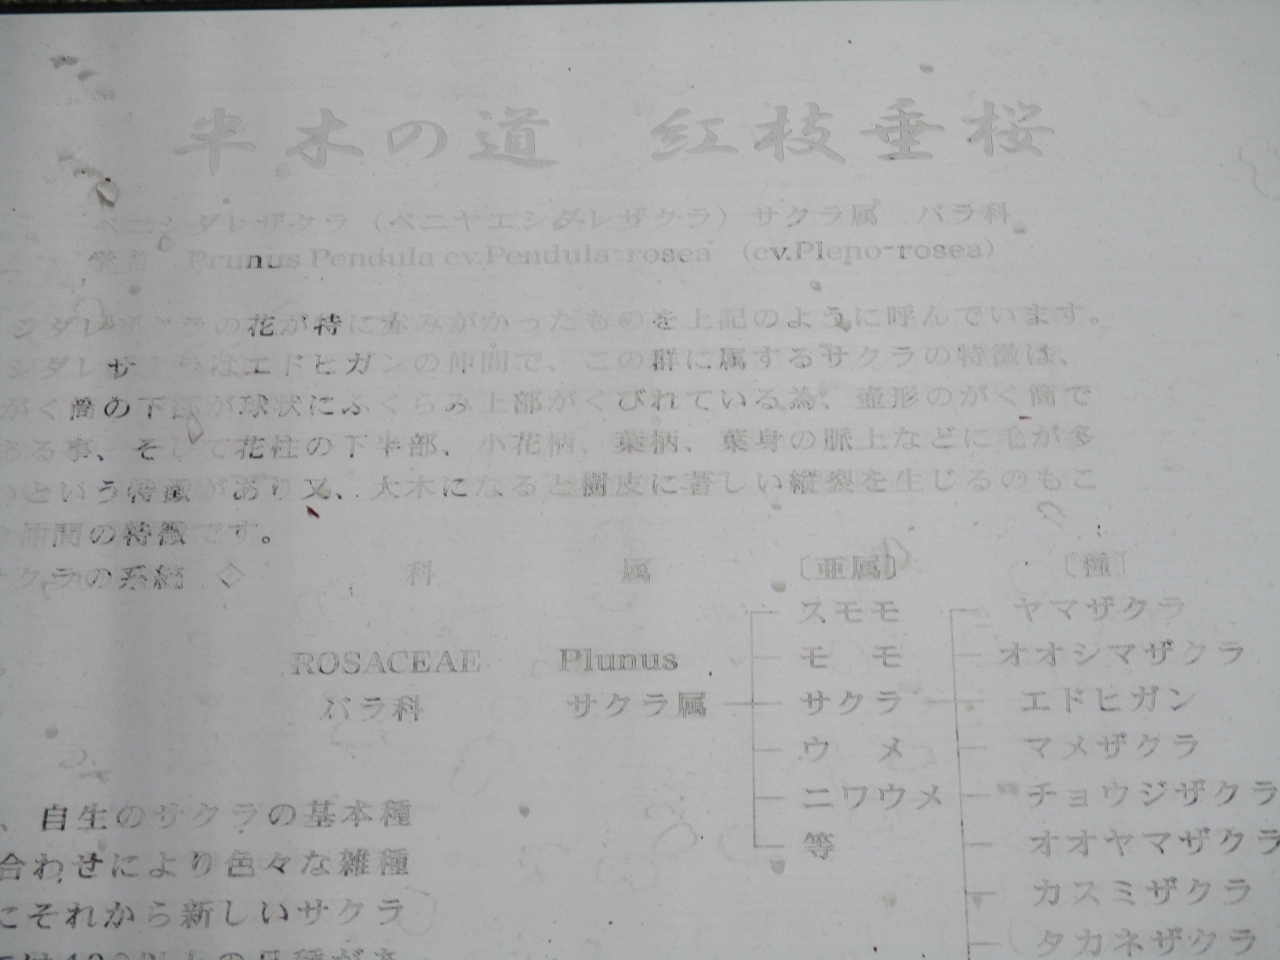 半木の道 紅枝垂桜
ベニシダレザクラ（ベニヤエシダレザクラ）サクラ属 バラ科
学名 Prunus Pendula cv.Pendula-rosea (cv.Pleno-rosea)
シダレザクラの花が特に赤みがかったものを上記のように呼んでいます。
シダレザクラはエドヒガンの仲間で、この群に属するサクラの特徴は、
がく筒の下部が球状にふくらみ上部がくびれている為、壷形のがく筒で
ある事、そして花柱の下半部、小花柄、葉柄、葉身の脈上などに毛が多
いという特徴があり又、大木になると樹皮に著しい縦裂を生じるのもこ
の仲間の特徴です。
サクラの系統 ◇ 科 属 〔亜属〕 〔種〕
スモモ ヤマザクラ
ROSACEAE Plunus モ モ オオシマザクラ
バラ科 サクラ属 サクラ エドヒガン
ウ メ マメザクラ
ニワウメ チョウジザクラ
、自生のサクラの基本種 等 オオヤマザクラ
合わせにより色々な雑種 カスミザクラ
にそれから新しいサクラ タカネザクラ